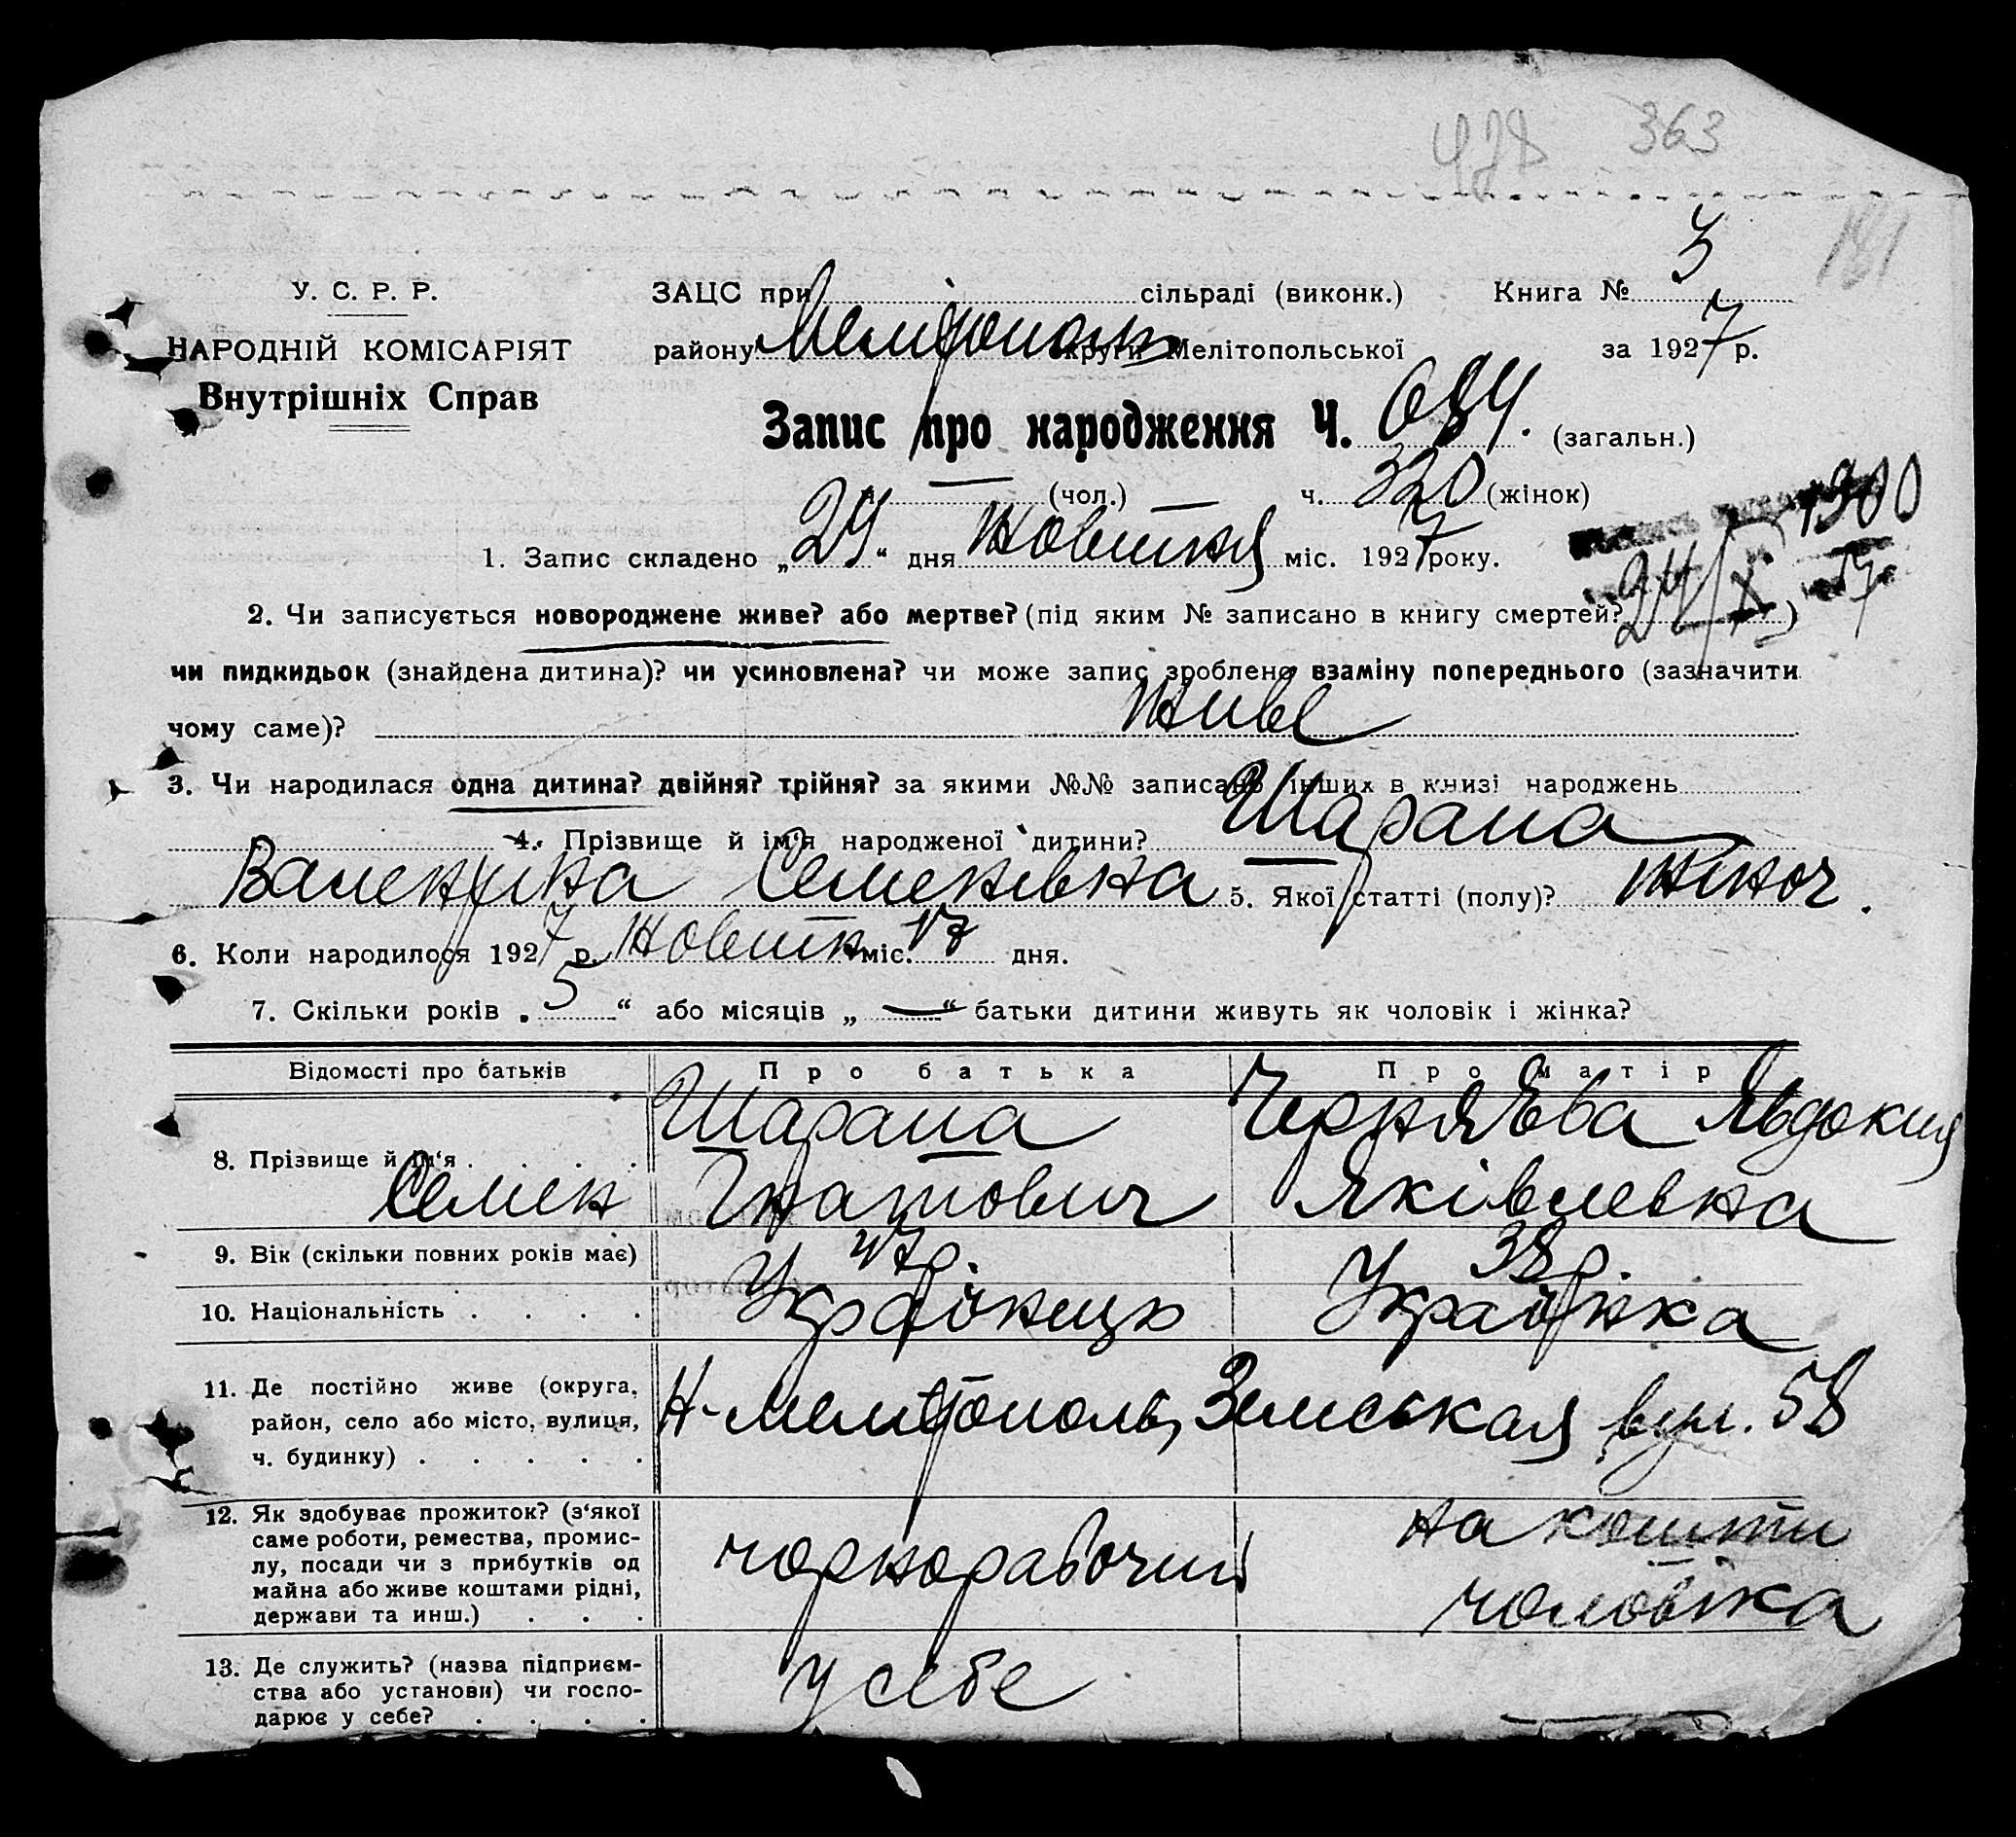 478 363
181
У. С. Р. Р.
НАРОДНІЙ КОМІСАРІЯТ
Внутрішніх Справ
ЗАЦС при сільраді (виконк.) Книга № 3
району Мелітополь округи Мелітопольської за 1927 р.
Запис про народження Ч. 684. (загальн.)
— (чол.) ч. 320 (жінок)
1900
1. Запис складено „24“ дня Жовтня міс. 1927 року.
24/X 27
2. Чи записується новороджене живе? або мертве? (під яким № записано в книгу смертей? )
чи пидкидьок (знайдена дитина)? чи усиновлена? чи може запис зроблено взаміну попереднього (зазначити
чому саме)? Живе
3. Чи народилася одна дитина? двійня? трійня? за якими №№ записано інших в книзі народжень
4. Прізвище й ім‘я народженої дитини? Шарапа
Валентина Семенівна 5. Якої статті (полу)? Жіноч.
6. Коли народилося 1927 р. Жовтня міс. 17 дня.
7. Скільки років „5“ або місяців „—“ батьки дитини живуть як чоловік і жінка?
Відомості про батьків Про батька Про матір
8. Прізвище й ім‘я . . . . Шарапа Черняєва Явдокия
Семен Гнатович Яківлевна
9. Вік (скільки повних років має) 47 р. 38 р.
10. Національність . . . . Українець Українка
11. Де постійно живе (округа,
район, село або місто, вулиця,
ч. будинку) . . . . . Н-Мелітополь, Земськая вул. 58
12. Як здобуває прожиток? (з‘якої
саме роботи, ремества, промис-
лу, посади чи з прибутків од
майна або живе коштами рідні,
держави та инш.) . . . чорнорабочий на кошти
чоловіка
13. Де служить? (назва підприєм-
ства або установи) чи госпо-
дарює у себе? . . . . у себе —